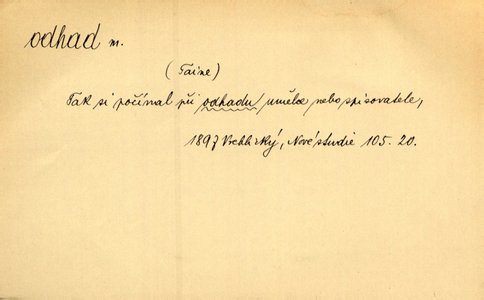 odhad m.
(Taine)
Tak si počínal při odhadu umělce nebo spisovatele,
1897 Vrchlický, Nové studie 105. 20.